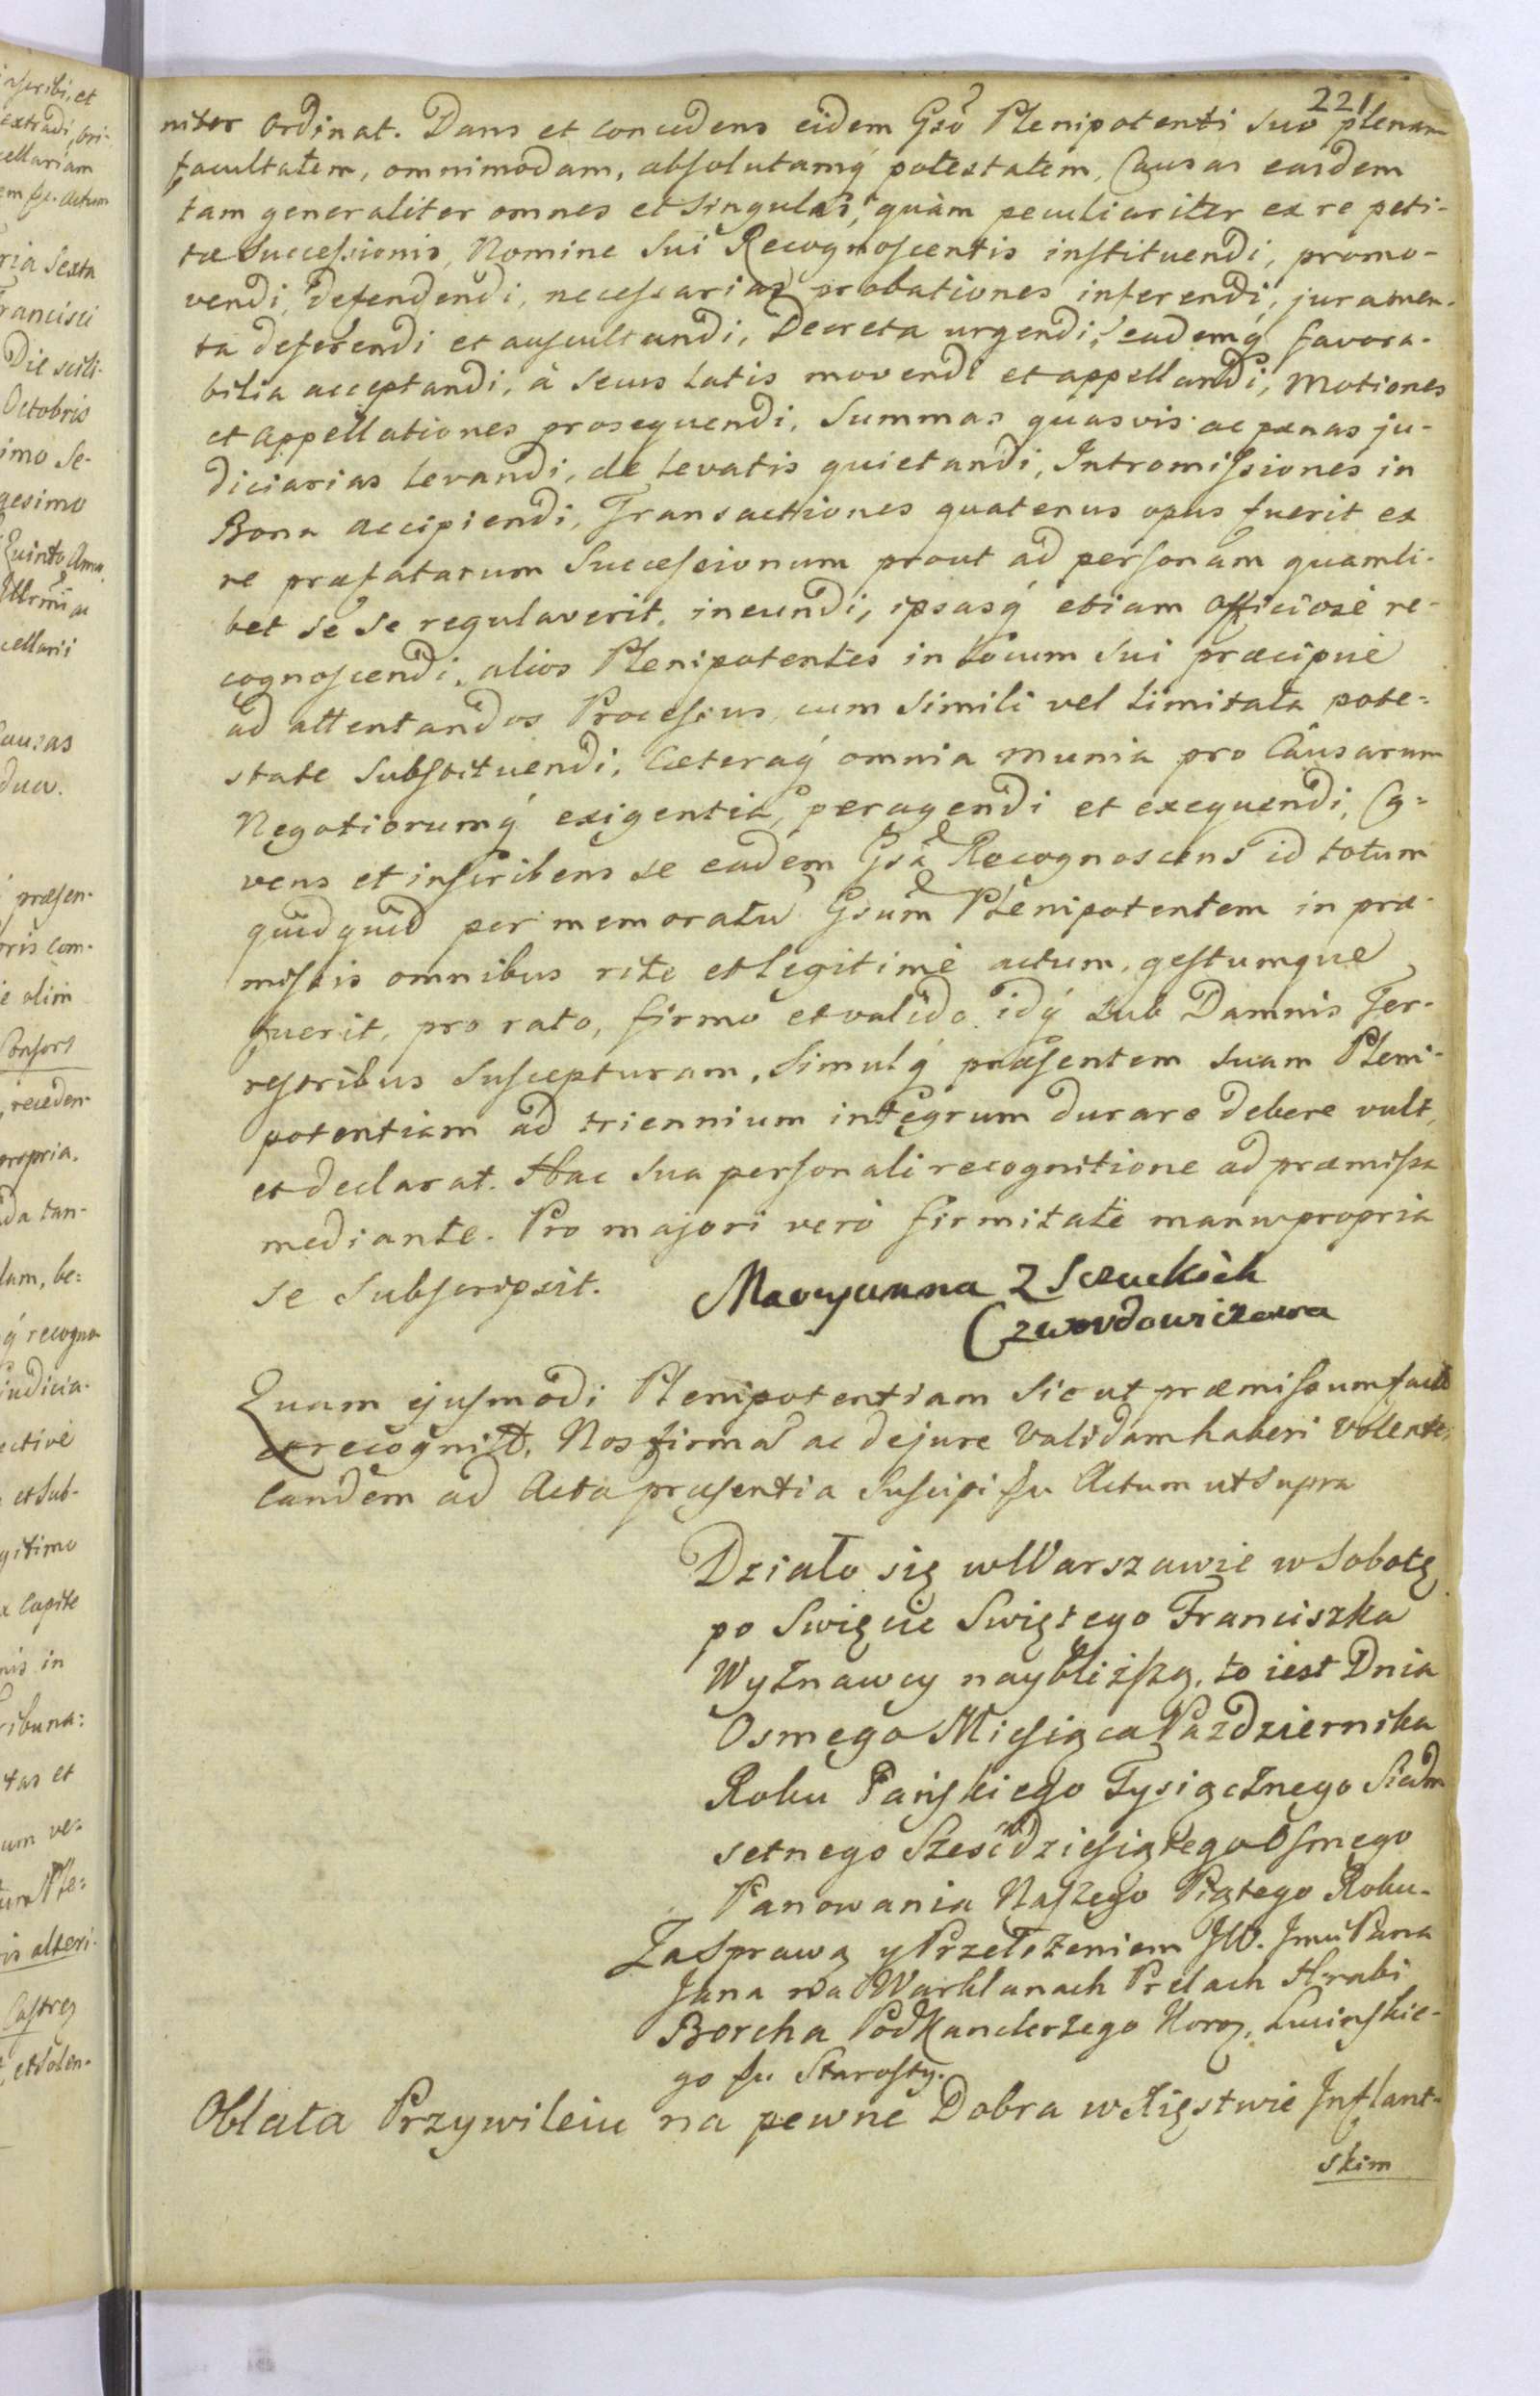 221
niter Ordinat. Dans et concedens eidem Gsô Plenipotenti suo plenam
facultatem, omnimodam, absolutamq́ potestatem, Causas easdem
tam generaliter omnes et singulas, quàm peculiariter ex re peti-
tæ Successionis, Nomine Sui Recognoscentis instituendi, promo-
vendi, defendendi, necessarias probationes inferendi, juramen-
ta deferendi et auscultandi, Decreta urgendi, eademq́ favora-
bilia acceptandi, à secus latis movendi et appellandi, Motiones
et Appellationes prosequendi, Summas quasvis ac pænas ju-
diciarias levandi, de levatis quietandi, Intromissiones in
Bona accipiendi, Transactiones quatenus opus fuerit ex
re præfatarum Successionum prout ad personam quamli-
bet se se regulaverit, ineundi, ipsasq́ etiam Officiosè re-
cognoscendi, alios Plenipotentes in locum Sui præcipuè
ad attentandos Processus, cum simili vel limitata pote=
state Substituendi, Cæteraq́ omnia munia pro Causarum
Negotiorumq́ exigentia, peragendi et exequendi, Ca=
vens et inscribens se eadem Gsa Recognoscens id totum
quidquid per memoratũ Gsum Plenipotentem in præ-
missis omnibus rite et legitimè actum, gestumque
fuerit, pro rato, firmo et valido, idq́ sub Damnis Ter-
restribus Suscepturam, Simulq́ præsentem suam Pleni-
potentiam ad triennium integrum durare debere vult,
et declarat. Hac sua personali recognitione ad præmissa
mediante. Pro majori verò firmitate manu propria
se Subscripsit. Maryanna z Sczuckich
Czwordowiczowa
Quam ejusmodi Plenipotentiam sic ut præmissum
et recognit, Nos firmã ac de jure validam haberi volentes,
eandem ad Acta præsentia Suscipi Actum ut supra
Działo się w Warszawie w Sobotę
po Swięcie Swiętego Franciszka
Wyznawcy naybliższą, to iest Dnia
Osmego Miesiąca Pazdziernika
Roku Pańskiego Tysiącznego Siedm
setnego Sześćdziesiątego Osmego
Panowania Naszego Piątego Roku.
Za Sprawą y Przełożeniem JW. Jmci Pana
Jana na Warklanach Prelach Hrabi
Borcha Podkanclerzego Koro. Lucinskie-
go Starosty.
Oblata Przywileiu na pewne Dobra w Xięstwie Inflant-
skim